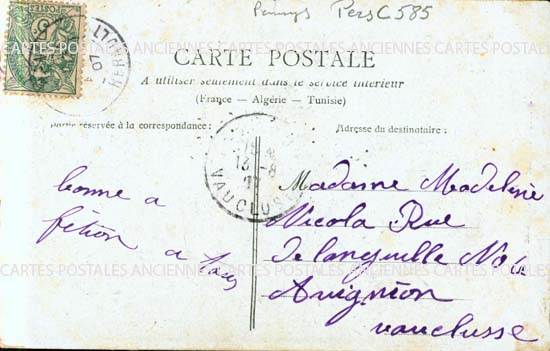 Pers C 585
CARTE POSTALE
A utiliser seulement dans le service intérieur
(France — Algérie — Tunisie)
Partie réservée à la correspondance :
Adresse du destinataire :
CARTES POSTALES ANCIENNES CARTES POSTALES ANCIENNES CARTES POSTALES
13 -8
VAUCLUSE
bonne a
fétion a tous
Madame Madeleine
Nicola Rue
de languille No
Avignion
vauclusse
CARTES POSTALES ANCIENNES CARTES POSTALES ANCIENNES CARTES POSTALES